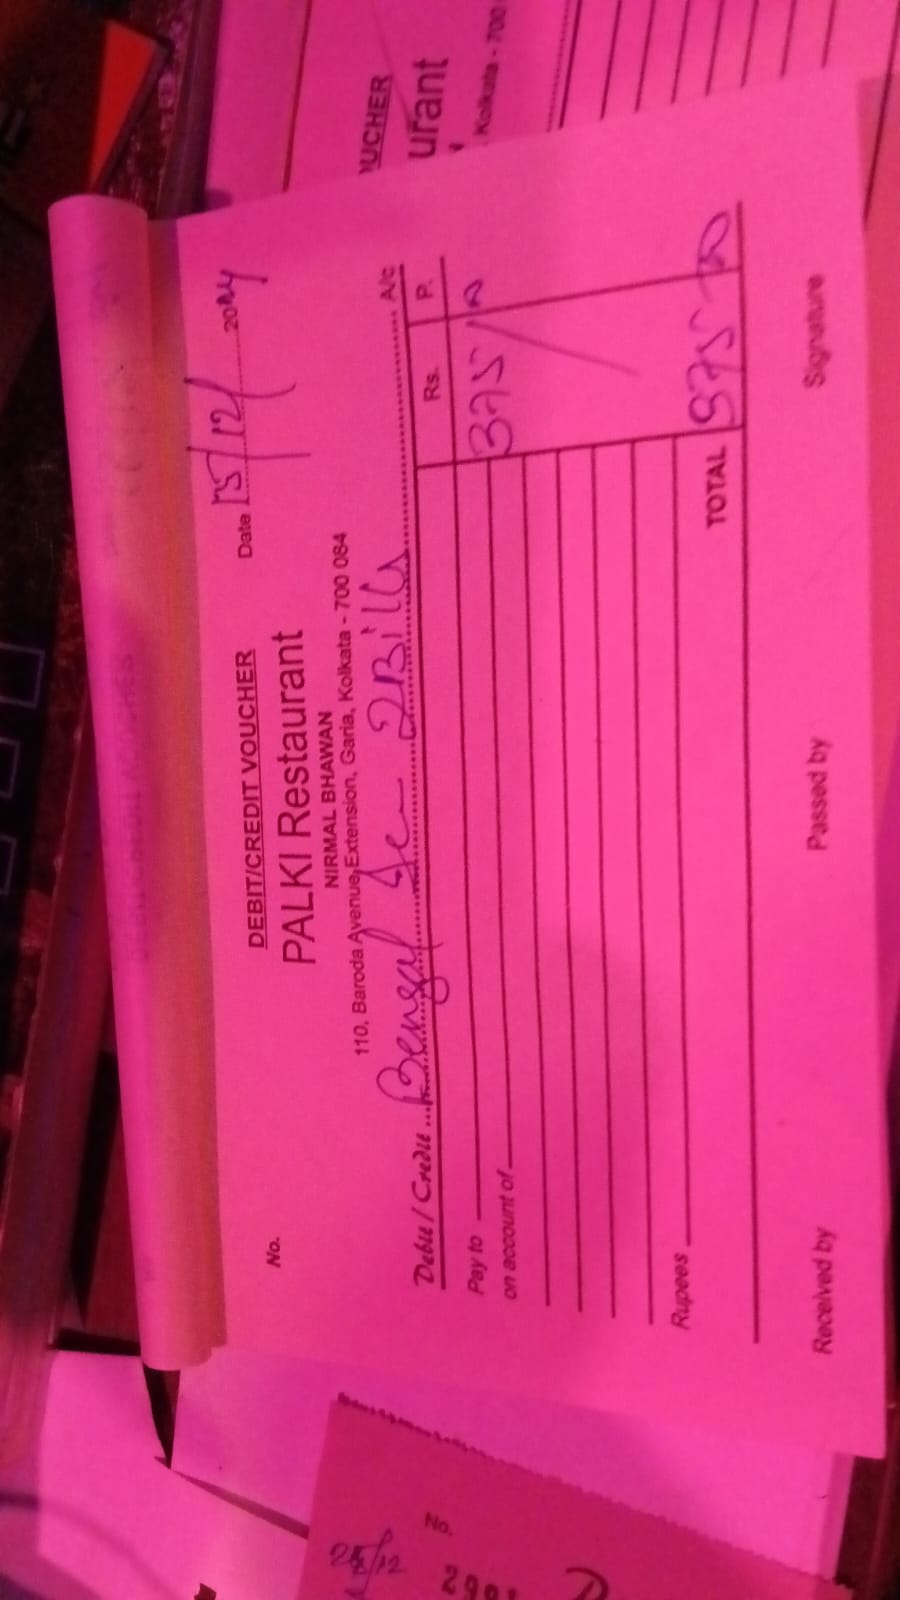 DEBIT/CREDIT VOUCHER
No.
Date 15/12/ 2024
PALKI Restaurant
NIRMAL BHAWAN
110, Baroda Avenue, Extension, Garia, Kolkata - 700 084
Debit / Credit Bengal 2 Bills A/c
Rs. P.
Pay to 375/
on account of
Rupees
TOTAL
Received by Passed by Signature
OUCHER
urant
Kolkata - 700
25/12
No.